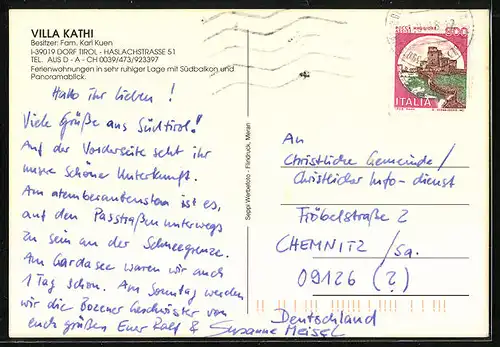 VILLA KATHI
Besitzer: Fam. Karl Kuen
I-39019 DORF TIROL - HASLACHSTRASSE 51
TEL. AUS D - A - CH 0039/473/923397
Ferienwohnungen in sehr ruhiger Lage mit Südbalkon und
Panoramablick.
Hallo ihr Lieben!
Viele Grüße aus Südtirol!
Auf der Vorderseite seht ihr
unsere schöne Unterkunft.
Am atemberaubensten ist es,
auf den Passtraßen unterwegs
zu sein an der Schneegrenze.
Am Gardasee waren wir auch
1 Tag schon. Am Sonntag werden
wir die Bozener Geschwister von
euch grüßen Euer Ralf & Susanne Meisel
Seppi Werbefoto - Medus, Meran
ITALIA
An
Christliche Gemeinde/
Christlicher Info-dienst
Fröbelstraße 2
CHEMNITZ/Sa.
09126 (?)
Deutschland